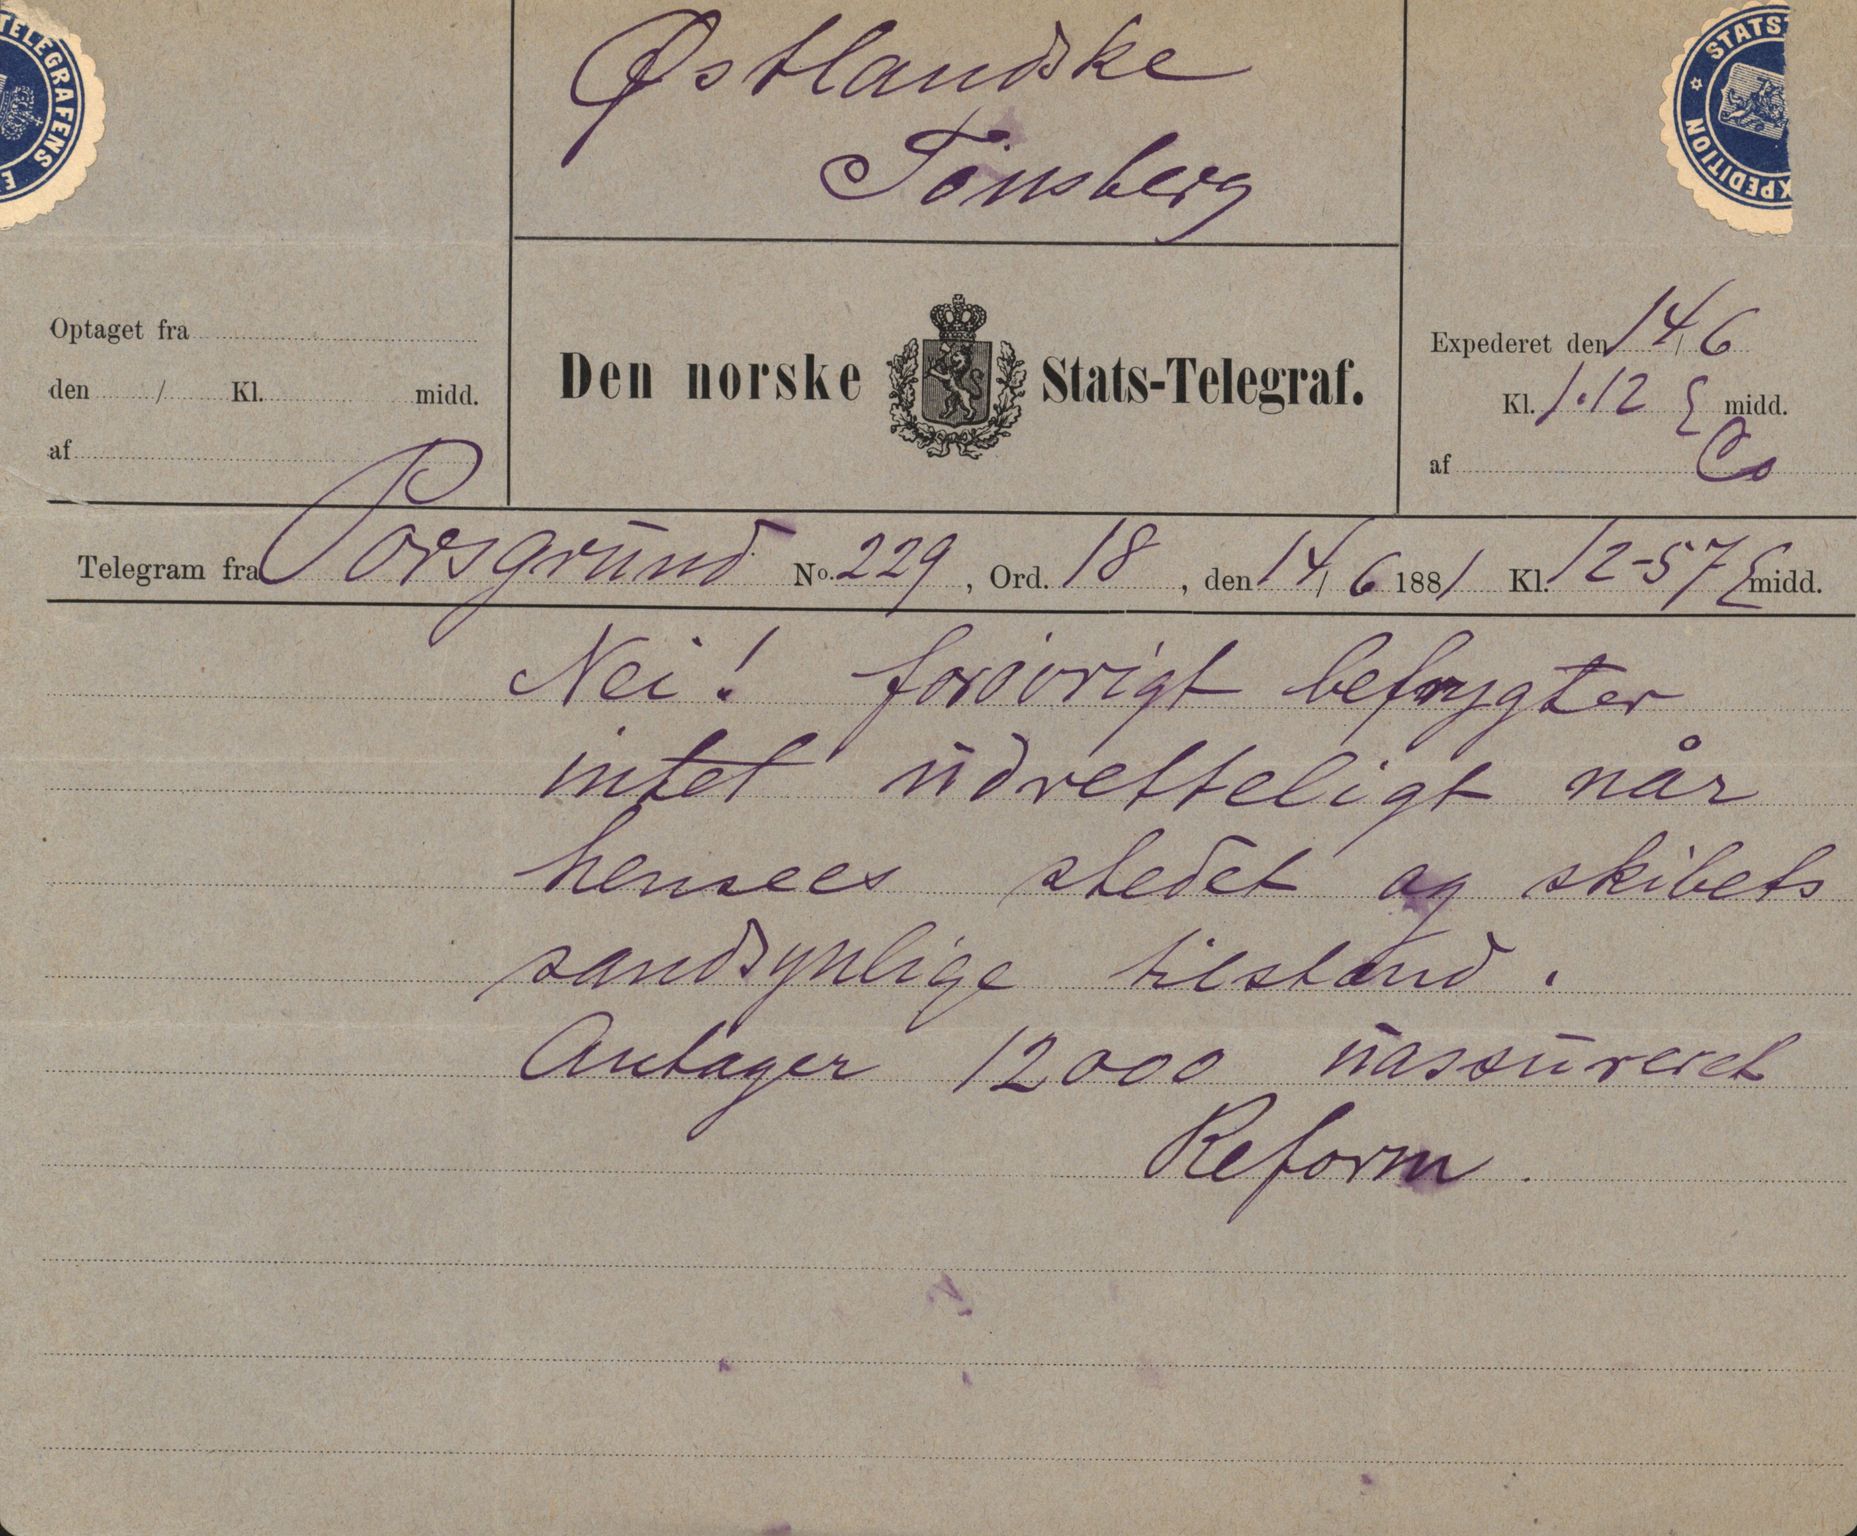 TELEGRAFENS E
Østlandske
Tönsberg
STATS
XPEDITION
Optaget fra
den / Kl. midd.
af
Den norske Stats-Telegraf.
Expederet den 14/6
Kl. 1.12 E midd.
af Co
Telegram fra Porsgrund No. 229, Ord. 18, den 14/6 1881 Kl. 12-57 E midd.
Nei! forövrigt befrygter
intet udretteligt når
hensees stedet og skibets
sandsynlige tilstand.
Antager 12000 uassureret
Reform.